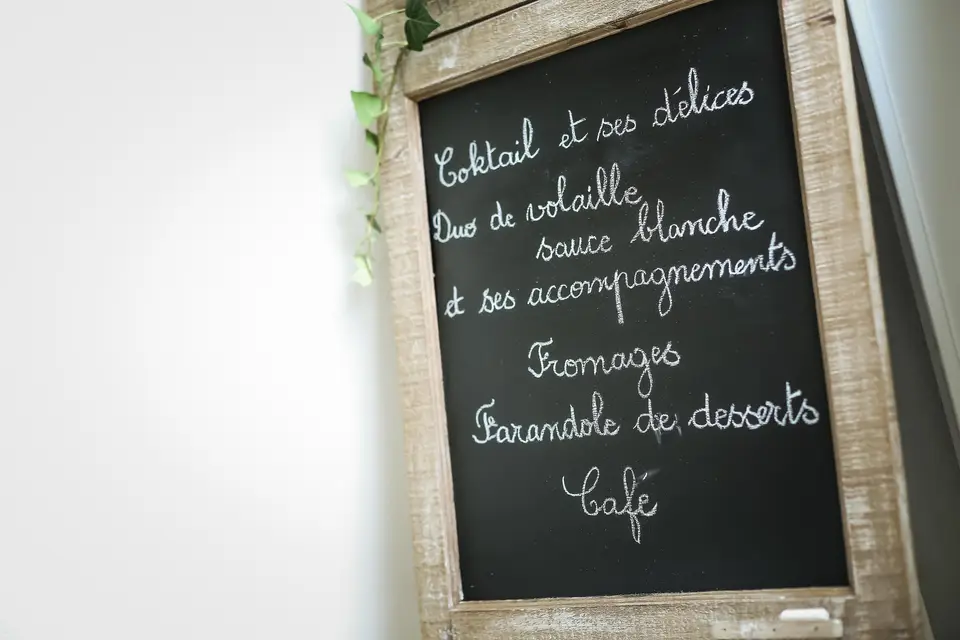 Coktail et ses délices
Duo de volaille
sauce blanche
et ses accompagnements
Fromages
Farandole de desserts
Café